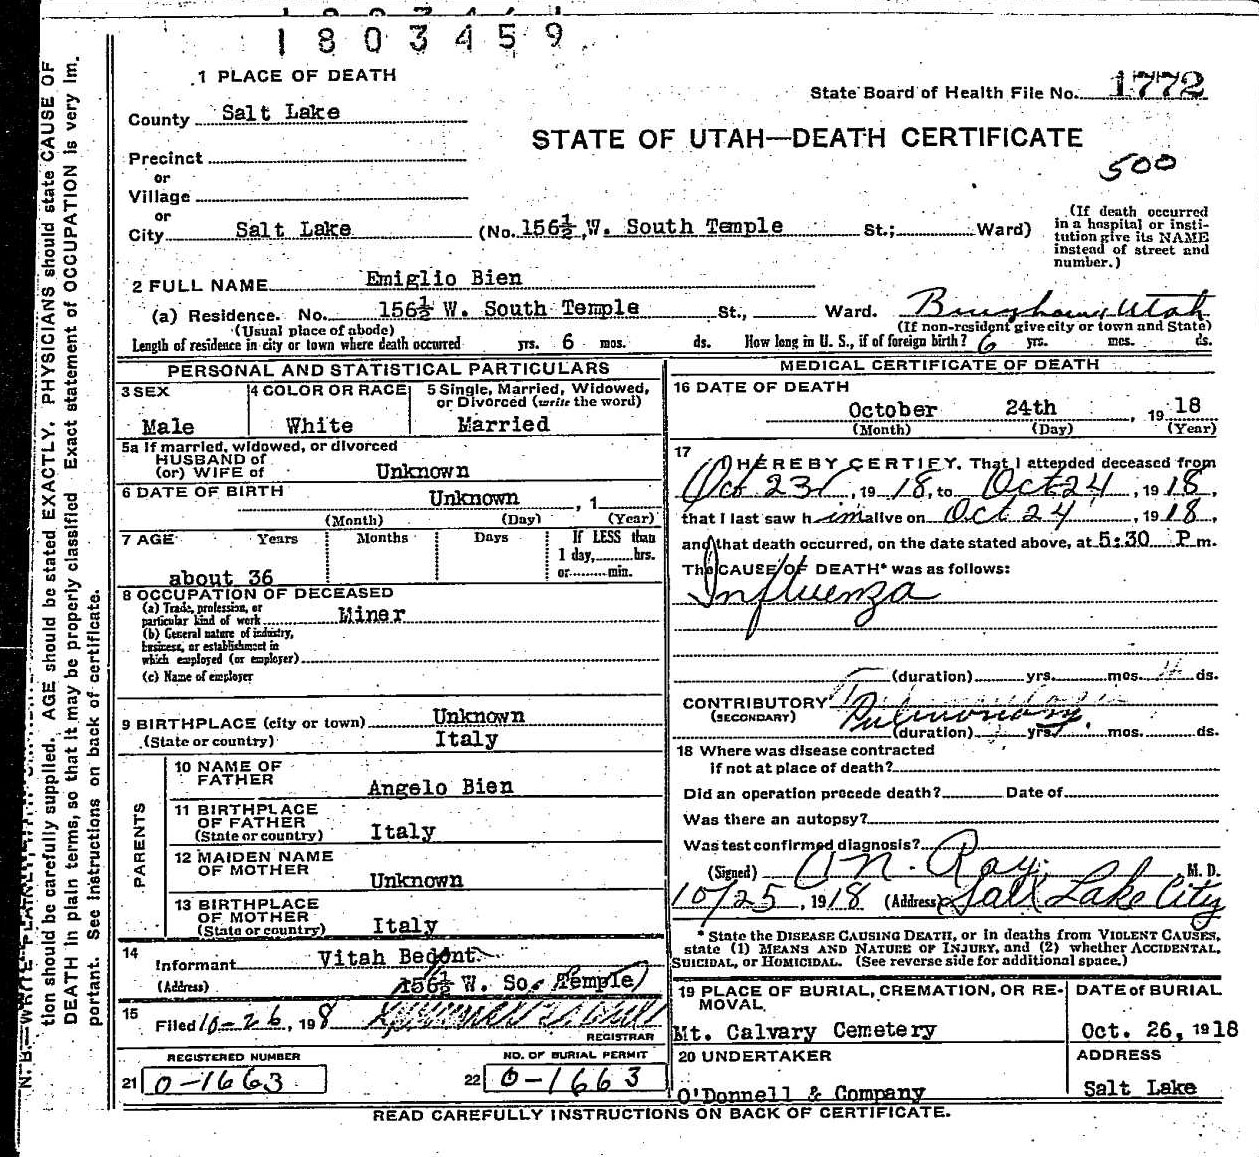 1803459
1 PLACE OF DEATH
State Board of Health File No. 1772
County Salt Lake
STATE OF UTAH—DEATH CERTIFICATE
Precinct
500
or
Village
or
City Salt Lake (No. 156½ W. South Temple St.; Ward)
(If death occurred in a hospital or institution give its NAME instead of street and number.)
2 FULL NAME Emiglio Bien
(a) Residence. No. 156½ W. South Temple St., Ward. Utah
(Usual place of abode) (If non-resident give city or town and State)
Length of residence in city or town where death occurred yrs. 6 mos. ds. How long in U. S., if of foreign birth? 6 yrs. mos. ds.
PERSONAL AND STATISTICAL PARTICULARS
3 SEX 4 COLOR OR RACE 5 Single, Married, Widowed, or Divorced (write the word)
Male White Married
5a If married, widowed, or divorced
HUSBAND of
(or) WIFE of Unknown
6 DATE OF BIRTH Unknown , 1
(Month) (Day) (Year)
7 AGE Years Months Days If LESS than
1 day, hrs.
about 36 or min.
8 OCCUPATION OF DECEASED
(a) Trade, profession, or
particular kind of work Miner
(b) General nature of industry,
business, or establishment in
which employed (or employer)
(c) Name of employer
9 BIRTHPLACE (city or town) Unknown
(State or country) Italy
PARENTS
10 NAME OF
FATHER Angelo Bien
11 BIRTHPLACE
OF FATHER
(State or country) Italy
12 MAIDEN NAME
OF MOTHER Unknown
13 BIRTHPLACE
OF MOTHER
(State or country) Italy
14
Informant Vitah Bedont
(Address) 156½ W. So. Temple
15
Filed 10-26, 1918
REGISTRAR
REGISTERED NUMBER NO. OF BURIAL PERMIT
21 0-1663 22 0-1663
MEDICAL CERTIFICATE OF DEATH
16 DATE OF DEATH
October 24th , 1918
(Month) (Day) (Year)
17
I HEREBY CERTIFY, That I attended deceased from
Oct 23, 1918, to Oct 24, 1918,
that I last saw him alive on Oct 24, 1918,
and that death occurred, on the date stated above, at 5:30 P m.
The CAUSE OF DEATH* was as follows:
Influenza
(duration) yrs. mos. 4 ds.
CONTRIBUTORY
(SECONDARY) Pulmonary.
(duration) yrs. mos. ds.
18 Where was disease contracted
if not at place of death?
Did an operation precede death? Date of
Was there an autopsy?
Was test confirmed diagnosis?
(Signed) Ray, M. D.
10/25, 1918 (Address) Salt Lake City
* State the DISEASE CAUSING DEATH, or in deaths from VIOLENT CAUSES,
state (1) MEANS AND NATURE OF INJURY, and (2) whether ACCIDENTAL,
SUICIDAL, or HOMICIDAL. (See reverse side for additional space.)
19 PLACE OF BURIAL, CREMATION, OR RE-
MOVAL
DATE OF BURIAL
Mt. Calvary Cemetery Oct. 26, 1918
20 UNDERTAKER ADDRESS
O'Donnell & Company Salt Lake
READ CAREFULLY INSTRUCTIONS ON BACK OF CERTIFICATE.
N. B.—WRITE PLAINLY,
tion should be carefully supplied. AGE should be stated EXACTLY. PHYSICIANS should state CAUSE OF
DEATH in plain terms, so that it may be properly classified Exact statement of OCCUPATION is very im-
portant. See instructions on back of certificate.